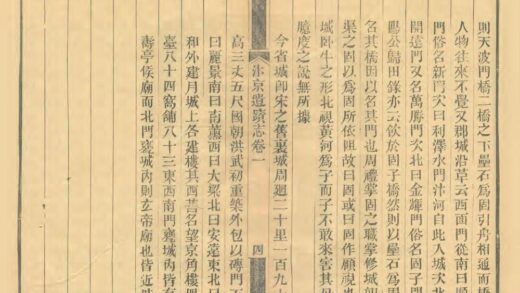 則天波門橋二橋之下壘石爲固引舟相通而橋
人物往來不覺又郡城沿草云西面門從南曰順
門俗名新門次曰利澤水門汴河自此入城次北
開遠門又名萬勝門次北曰金耀門俗名固子門
鷗公歸田錄亦云欲於固子橋然則以壘石爲固
名其橋因以名其門也周禮掌固之職掌修城郭
渠之固以爲固所依阻故曰固或曰固作顧視也
城卧牛之形北視黃河爲子而子不敢來害其母
臆度之說無所據
今省城卽宋之舊裏城周迴二十里一百九十
汴京遺蹟志卷一
四
高三丈五尺國朝洪武初重築外包以磚門五
曰麗景南曰南薰西曰大梁北曰安遠東北曰
和外建月城上各建樓其西舊名望京角樓四
臺八十四窩鋪八十三東西南門甕城內皆有
壽亭侯廟而北門甕城內則玄帝廟也皆近時